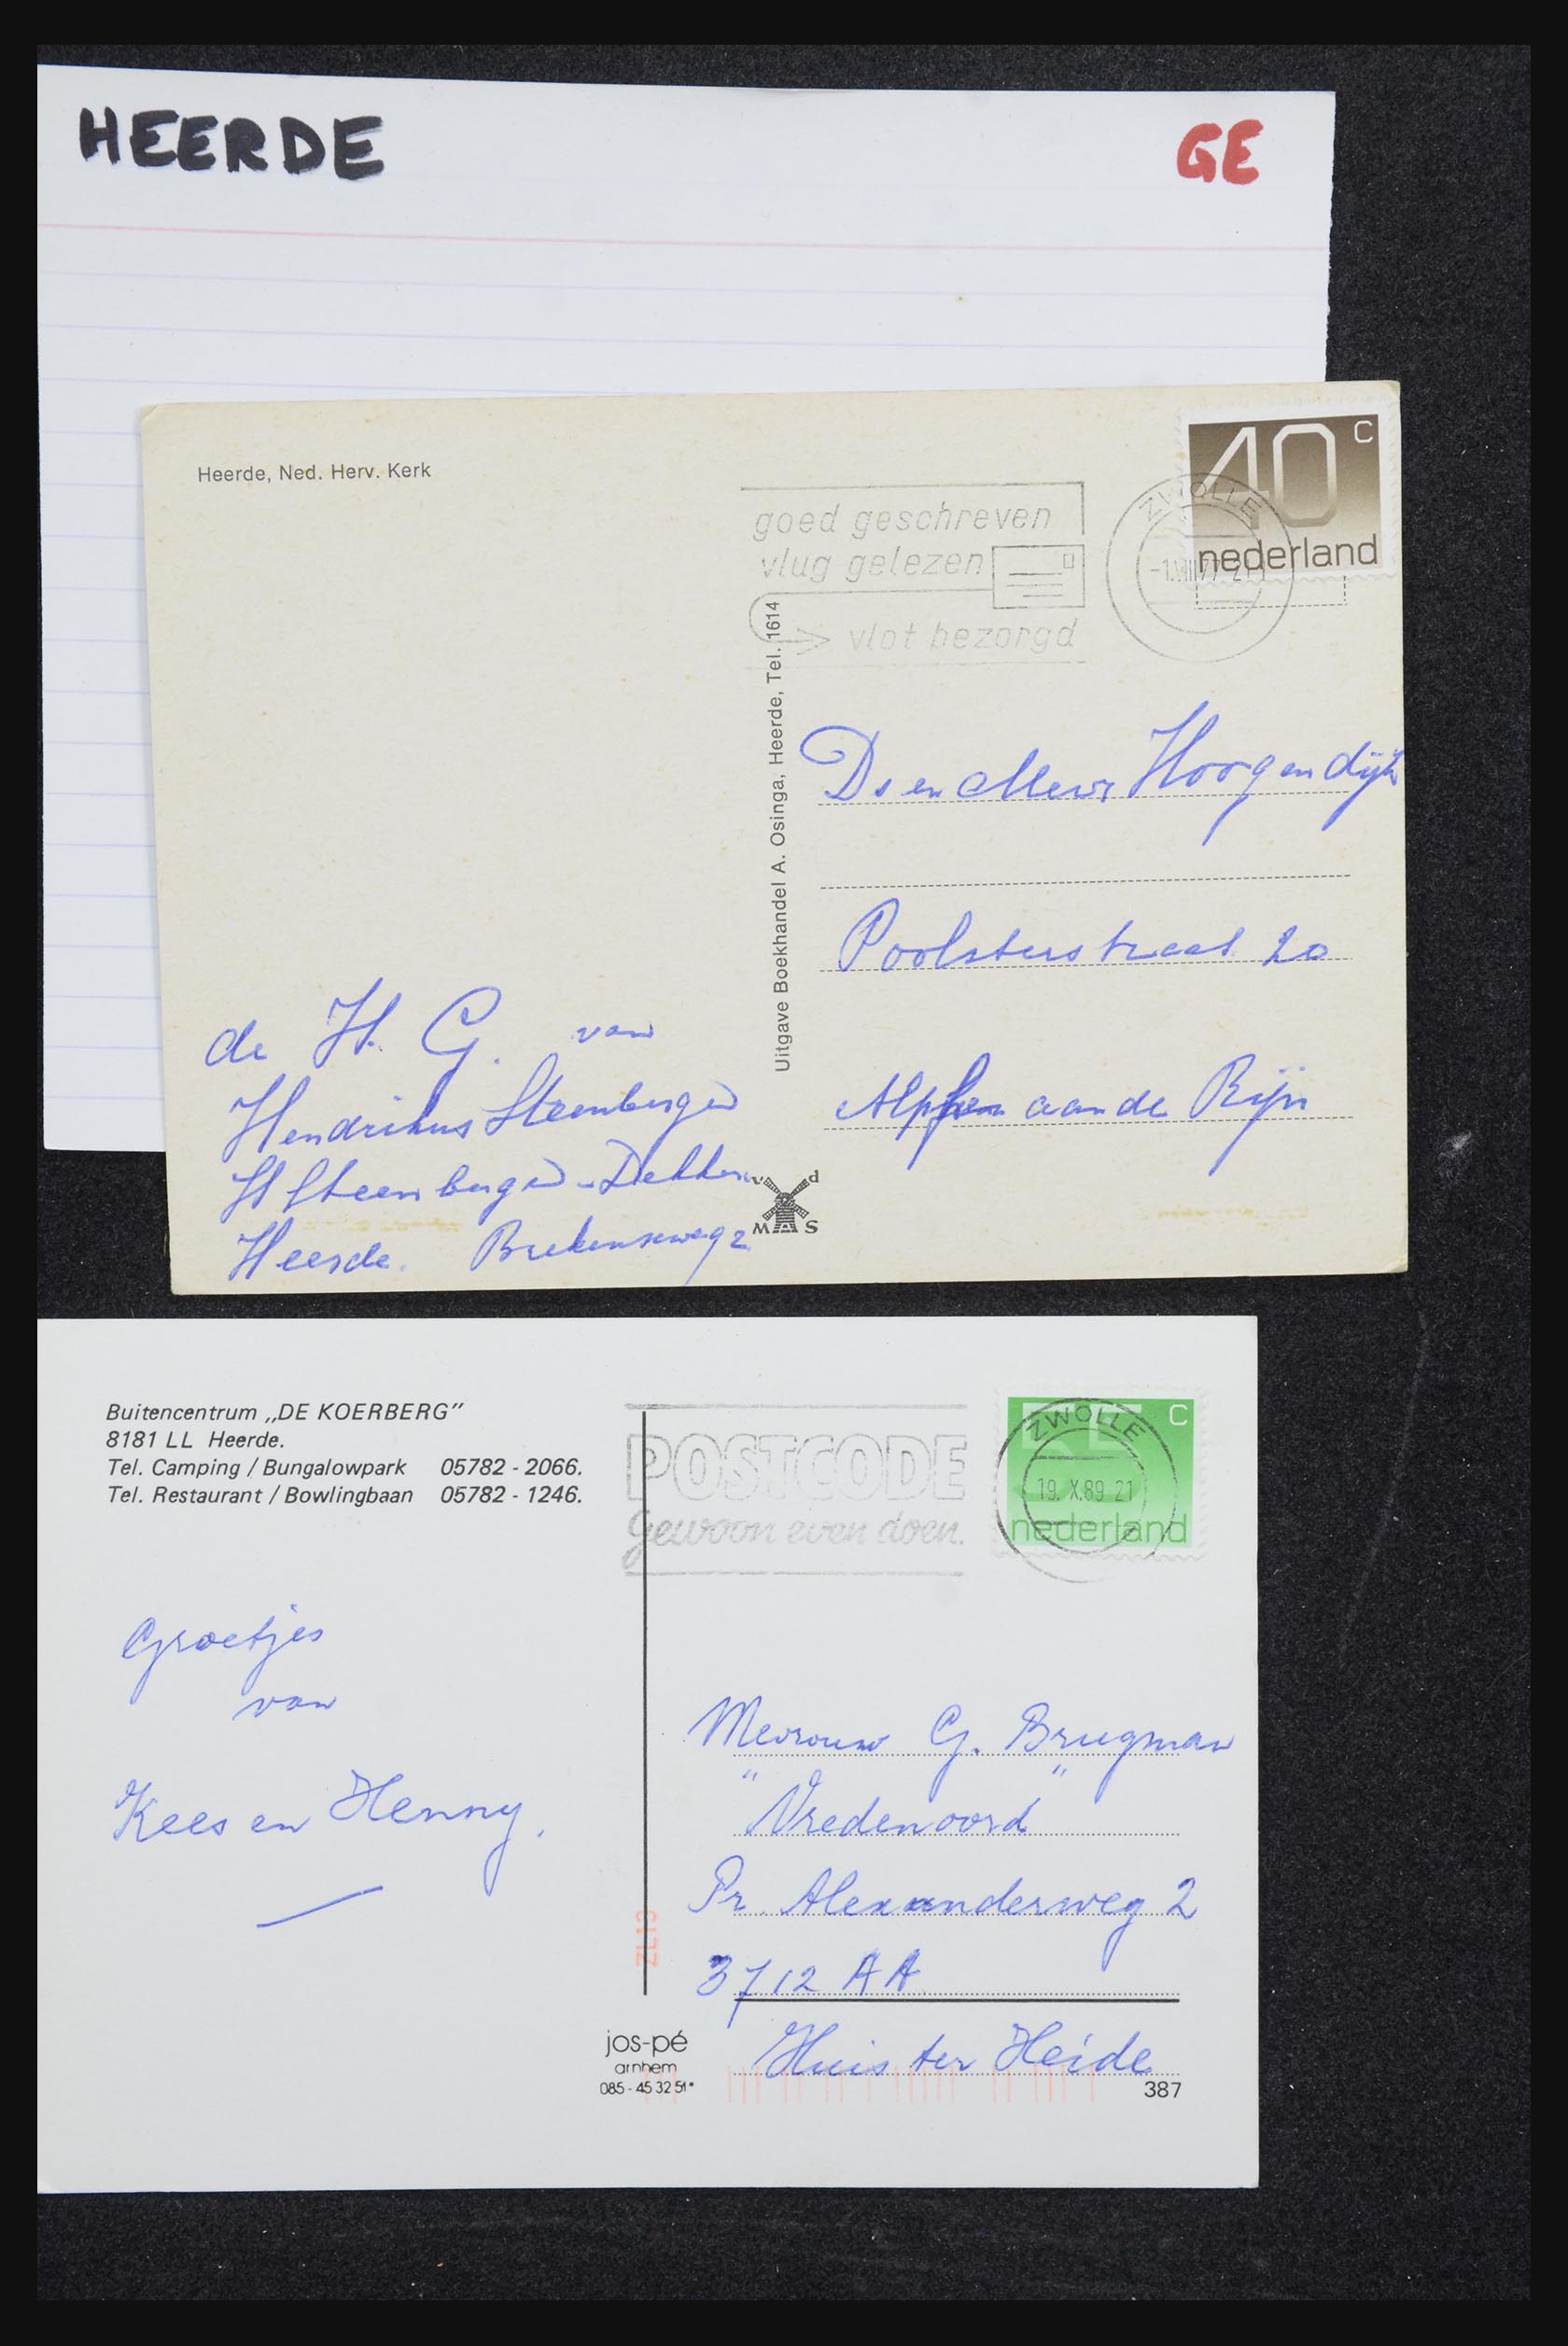 HEERDE
GE
Heerde, Ned. Herv. Kerk
goed geschreven
vlug gelezen
vlot bezorgd
ZWOLLE
40 c
nederland
Uitgave Boekhandel A. Osinga, Heerde, Tel. 1614
Ds en Mevr Hoogendijk
Poolsterstraat 20
Alphen aan de Rijn
de H. G. van
Hendrikus Steenbergen
H Steenbergen - Dekker
Heerde.
v d
M A S
Buitencentrum „DE KOERBERG”
8181 LL Heerde.
Tel. Camping / Bungalowpark 05782 - 2066.
Tel. Restaurant / Bowlingbaan 05782 - 1246.
POSTCODE
gewoon even doen.
ZWOLLE
19. X.89 21
c
nederland
Groetjes
van
Kees en Henny.
Mevrouw G. Brugman
"Vredenoord"
Pr. Alexanderweg 2
3712 AA
Huis ter Heide
ZL13
jos-pé
arnhem
085 - 45 32 51*
387